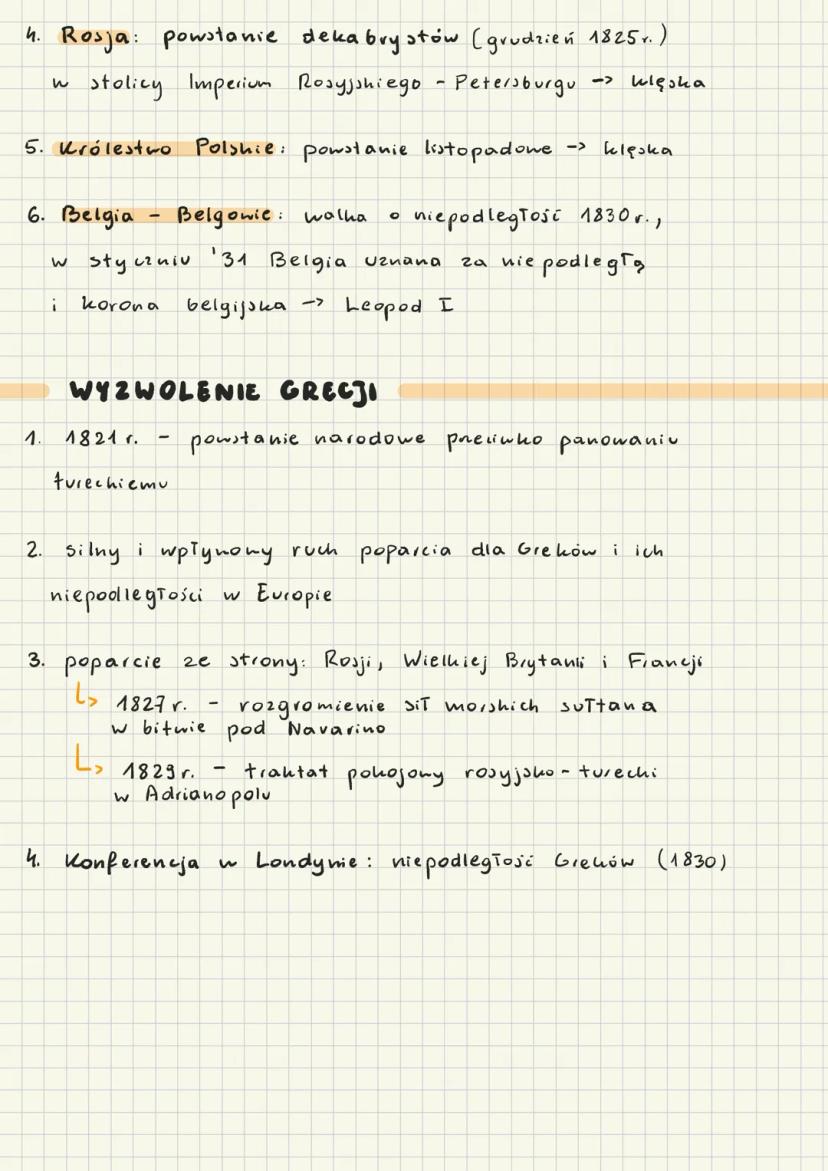 4. Rosja: powstanie dekabrystów (grudzień 1825r.)
w stolicy Imperium Rosyjskiego - Petersburgu -> klęska
5. Królestwo Polskie: powstanie listopadowe -> klęska
6. Belgia - Belgowie: walka o niepodległość 1830r.,
w styczniu '31 Belgia uznana za niepodległą
i korona belgijska -> Leopod I
WYZWOLENIE GRECJI
1. 1821 r. - powstanie narodowe przeciwko panowaniu
tureckiemu
2. silny i wpływowy ruch poparcia dla Greków i ich
niepodległości w Europie
3. poparcie ze strony: Rosji, Wielkiej Brytanii i Francji
↳ 1827 r. - rozgromienie sił morskich sułtana
w bitwie pod Navarino
↳ 1829 r. - traktat pokojowy rosyjsko-turecki
w Adrianopolu
4. Konferencja w Londynie: niepodległość Greków (1830)